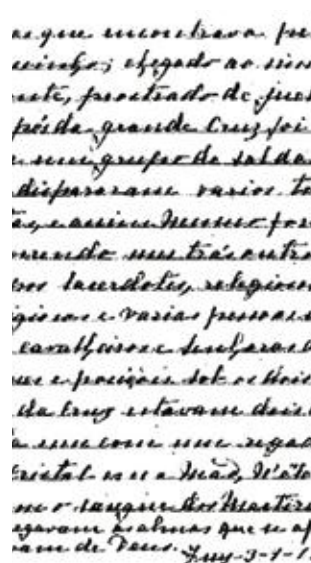 as que encontrava pe
minho; chegado ao cimo
nte, prostrado de joel
pés da grande Cruz foi
um grupo de solda
dispararam varios ti
e assim mesmo for
rrendo uns trás outro
vos Sacerdotes, religioso
giosas e varias pessoas
cavalheiros e senhoras
e posições. Sob os dois
da Cruz estavam dois
um com um regad
cristal em a mão, n'ele
o sangue dos Martir
egavam as almas que se ap
vam de Deus. Tuy-3-1-1